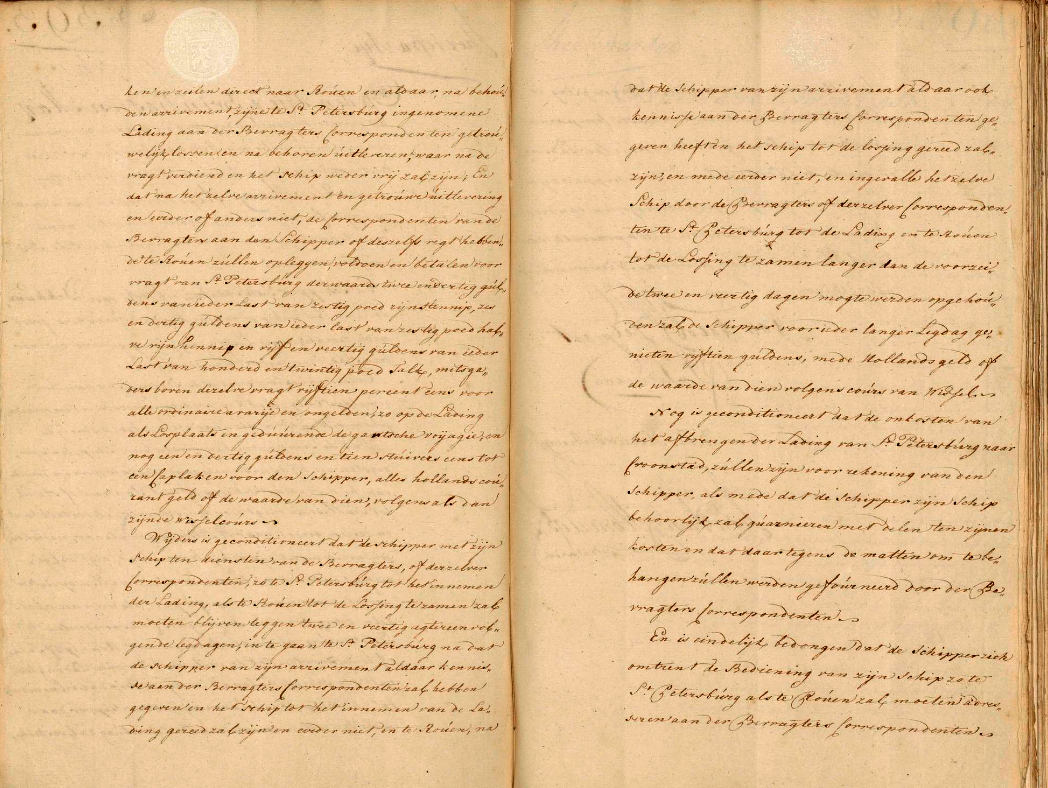 ken en zeilen direct naar Roúen en aldaar, na behoú,
den arrivement, zijne te St. Petersbúrg ingenomene
Lading aan der Bevragters Correspondenten getroú,
welijk lossen en na behoren úitleveren, waar na de
vragt verdiend en het Schip weder vrij zal zijn; En
dat na het zelve arrivement en getroúwe úitlevering
en eerder of anders niet, de Correspondenten van de
Bevragters aan den Schipper of deszelfs regt hebben,
de te Roúen zúllen opleggen, voldoen en betalen voor
vragt van St. Petersbúrg derwaards twee en veertig gúl,
dens van ieder Last van zestig poed rijnshennip, zes
en dertig gúldens van ieder last van zestig poed hal,
ve rijn hennip en vijf en veertig gúldens van ieder
Last van honderd en twintig poed Talk, mitsga,
ders boven dezelve vragt vijftien percent eens voor
alle ordinaire avarije en ongelden, zo op de Lading
als Losplaats en gedúúrende de gantsche voyagie, en
nog een en dertig gúldens en tien stúivers eens tot
een Caplaken voor den Schipper, alles hollands coú,
rant geld of de waarde van dien, volgens als dan
zijnde wisselcoúrs
Wijders is geconditioneert dat de schipper met zijn
Schip ten diensten van de Bevragters, of derzelver
Correspondenten, zo te St. Petersbúrg tot het innemen
der Lading, als te Roúen tot de Lossing te zamen zal
moeten blijven leggen twee en veertig agtereen vol,
gende legdagen, in te gaan te St. Petersbúrg na dat
de schipper van zijn arrivement aldaar kennis,
se aan der Bevragters Correspondenten zal hebben
gegeven en het schip tot het innemen van de La,
ding gereed zal zijn en eerder niet, en te Roúen, na
dat de Schipper van zijn arrivement aldaar ook
kennisse aan der Bevragters Correspondenten ge,
geven heeft en het schip tot de lossing gereed zal
zijn, en mede eerder niet, en ingevalle het zelve
Schip door de Bevragters of derzelver Corresponden,
ten te St. Petersbúrg tot de Lading en te Roúen
tot de Lossing te zamen langer dan de voorzei,
de twee en veertig dagen mogte werden opgehoú,
den zal de Schipper voor ieder langer Ligdag ge,
nieten vijftien gúldens, mede Hollands geld of
de waarde van dien volgens coúrs van Wissel.
Nog is geconditioneert dat de onkosten van
het affbrengen der Lading van St. Petersbúrg naar
Croonstad, zúllen zijn voor rekening van den
Schipper, als mede dat de Schipper zijn Schip
behoorlijk zal gúarnieren met delen ten zijnen
kosten en dat daar tegens de matten om te be,
hangen zúllen werden gefoúrneerd door der Be,
vragters Correspondenten
En is eindelijk bedongen dat de Schipper zich
omtrent de Bediening van zijn Schip zo te
St. Petersbúrg als te Roúen zal moeten adres,
seren aan der Bevragters Correspondenten